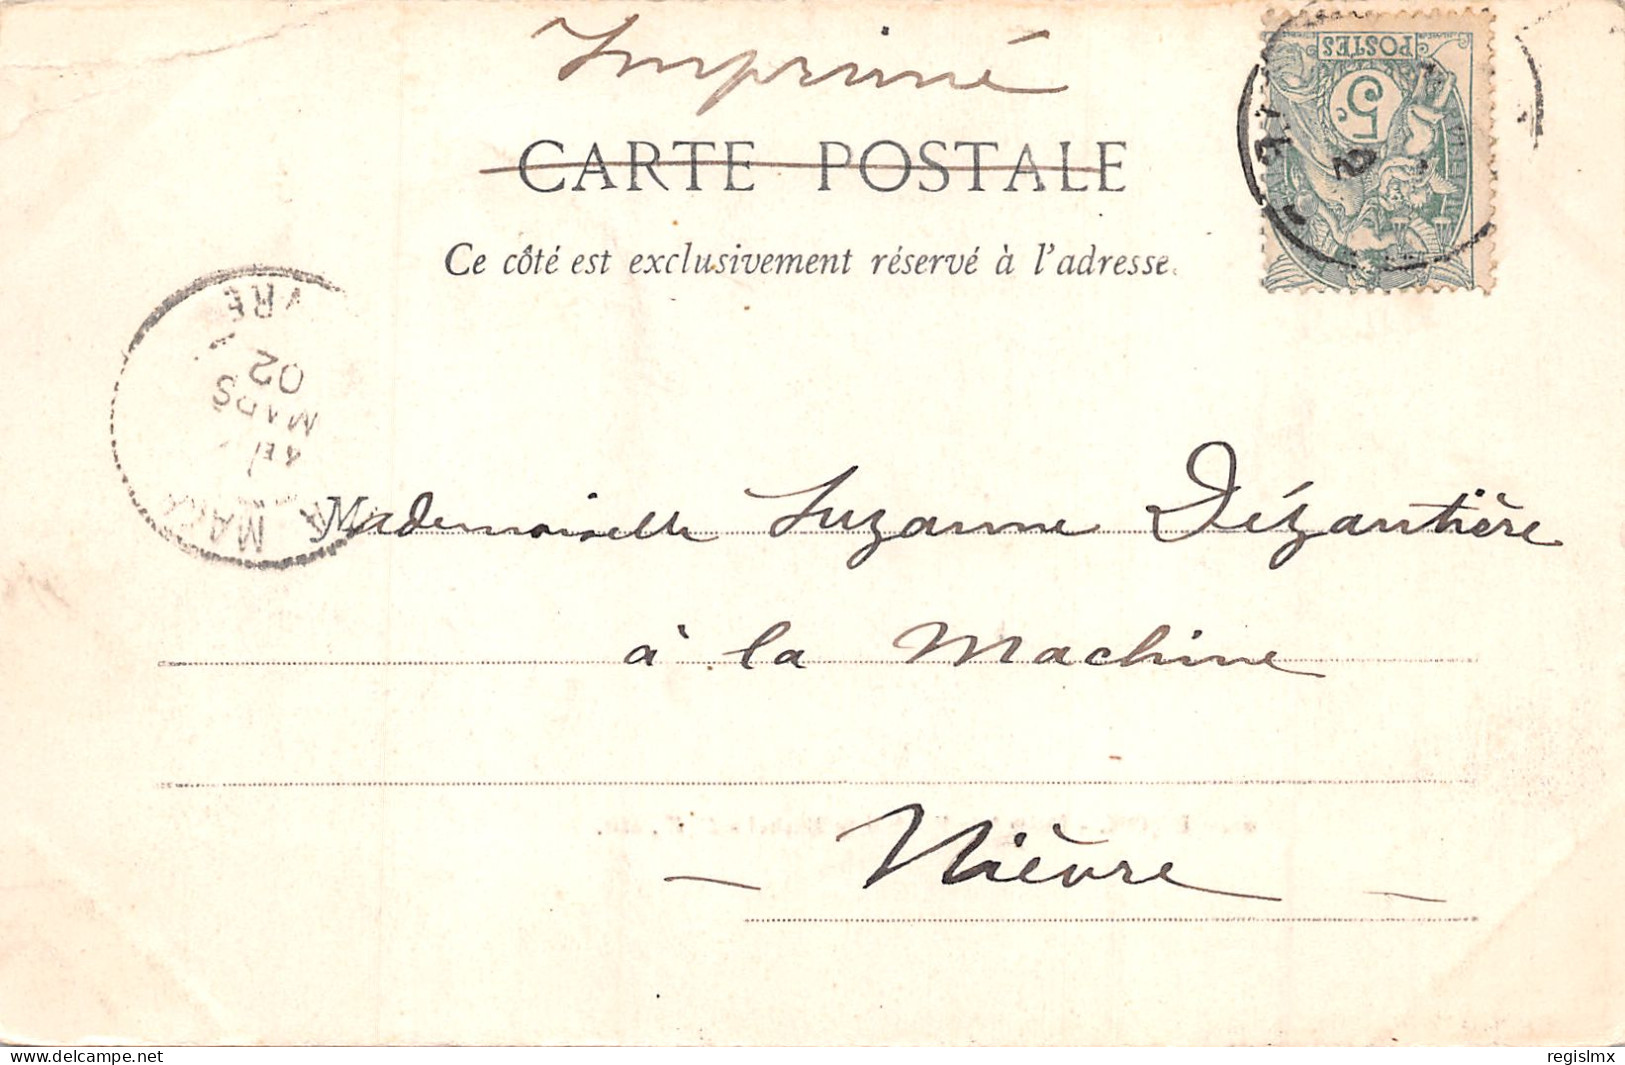 Imprimé
CARTE POSTALE
Ce côté est exclusivement réservé à l'adresse.
POSTES
5
MARS
02
Mademoiselle Suzanne Dézautière
à la Machine
- Nièvre -
www.delcampe.net
regislmx